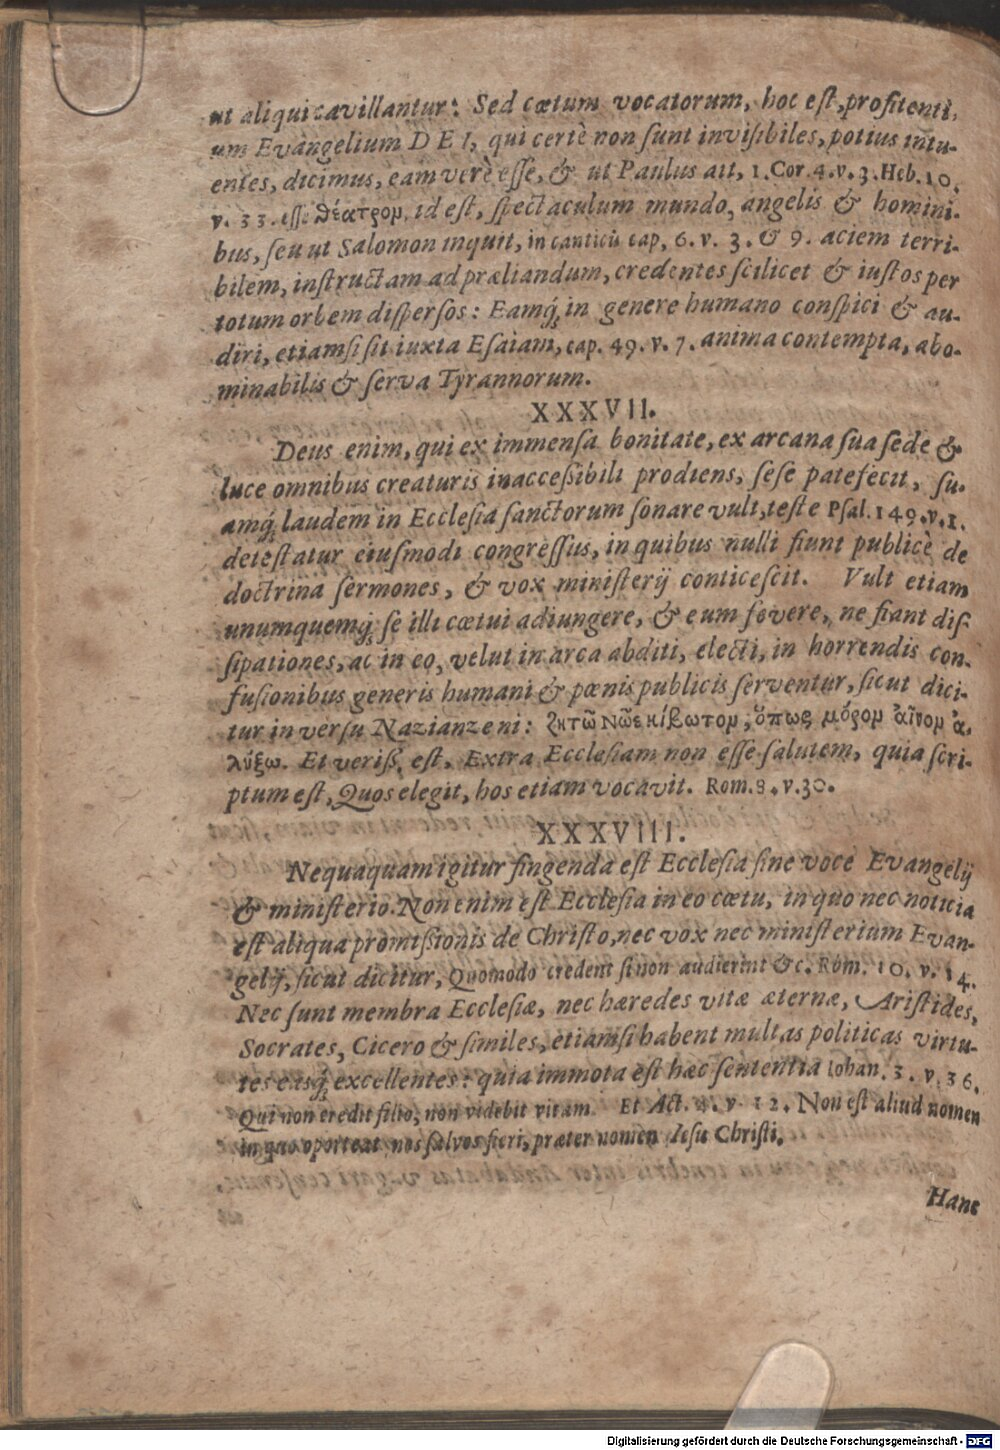 ut aliqui cavillantur: Sed cœtum vocatorum, hoc est, profitenti,
um Evangelium DEI, qui certè non sunt invisibiles, potius intu-
entes, dicimus, eam verè esse, & ut Paulus ait, 1. Cor. 4. v. 9. Heb. 10.
v. 33. esse θέατρον, id est, spectaculum mundo, angelis & homini-
bus, seu ut Salomon inquit, in canticis cap, 6. v. 3. & 9. aciem terri-
bilem, instructam ad præliandum, credentes scilicet & iustos per
totum orbem dispersos: Eamq́; in genere humano conspici & au-
diri, etiamsi sit iuxta Esaiam, cap. 49. v. 7. anima contempta, abo-
minabilis & serva Tyrannorum.
XXXVII.
Deus enim, qui ex immensa bonitate, ex arcana sua sede &
luce omnibus creaturis inaccessibili prodiens, sese patefecit, su-
amq́; laudem in Ecclesia sanctorum sonare vult, teste Psal. 149. v. 1.
detestatur eiusmodi congressus, in quibus nulli fiunt publicè de
doctrina sermones, & vox ministerij conticescit. Vult etiam
unumquemq́; se illi cœtui adiungere, & eum fovere, ne fiant dis-
sipationes, ac in eo, velut in arca abditi, electi, in horrendis con-
fusionibus generis humani & pœnis publicis serventur, sicut dici-
tur in versu Nazianzeni: ζητῶ Νῶε κίβωτον, ὅπως μόρον αἶνον ἀ-
λύξω. Et veriss. est, Extra Ecclesiam non esse salutem, quia scri-
ptum est, Quos elegit, hos etiam vocavit. Rom. 8. v. 30.
XXXVIII.
Nequaquam igitur fingenda est Ecclesia sine voce Evangelij
& ministerio. Non enim est Ecclesia in eo cœtu, in quo nec noticia
est aliqua promissionis de Christo, nec vox nec ministerium Evan-
gelij, sicut dicitur, Quomodo credent si non audierint &c. Rom. 10. v. 14.
Nec sunt membra Ecclesiæ, nec hæredes vitæ æternæ, Aristides,
Socrates, Cicero & similes, etiamsi habent multas politicas virtu-
tes easq́; excellentes: quia immota est hæc sententia Iohan. 3. v. 36.
Qui non credit filio, non videbit vitam. Et Act. 4. v. 12. Non est aliud nomen
in quo oporteat nos salvos fieri, præter nomen Iesu Christi.
Hanc
Digitalisierung gefördert durch die Deutsche Forschungsgemeinschaft - DFG